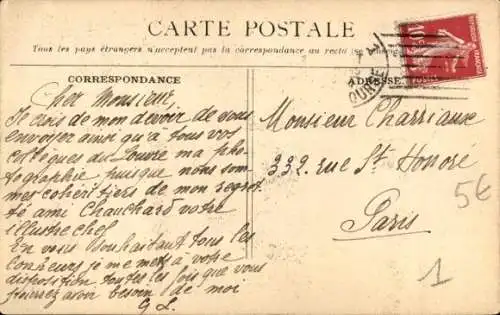 CARTE POSTALE
Tous les pays étrangers n'acceptent pas la correspondance au recto
CORRESPONDANCE
ADRESSE
Cher Monsieur,
Je crois de mon devoir de vous
envoyer ainsi qu'à tous vos
collègues du Louvre ma pho
tographie puisque nous som
mes cohéritiers de mon regret
té ami Chauchard votre
illustre chef
En vous souhaitant tous les
bonheurs je me mets à votre
disposition toutes les fois que vous
puissiez avoir besoin de moi
G L.
Monsieur Charriaux
332 rue St Honoré
Paris
5€
1
10